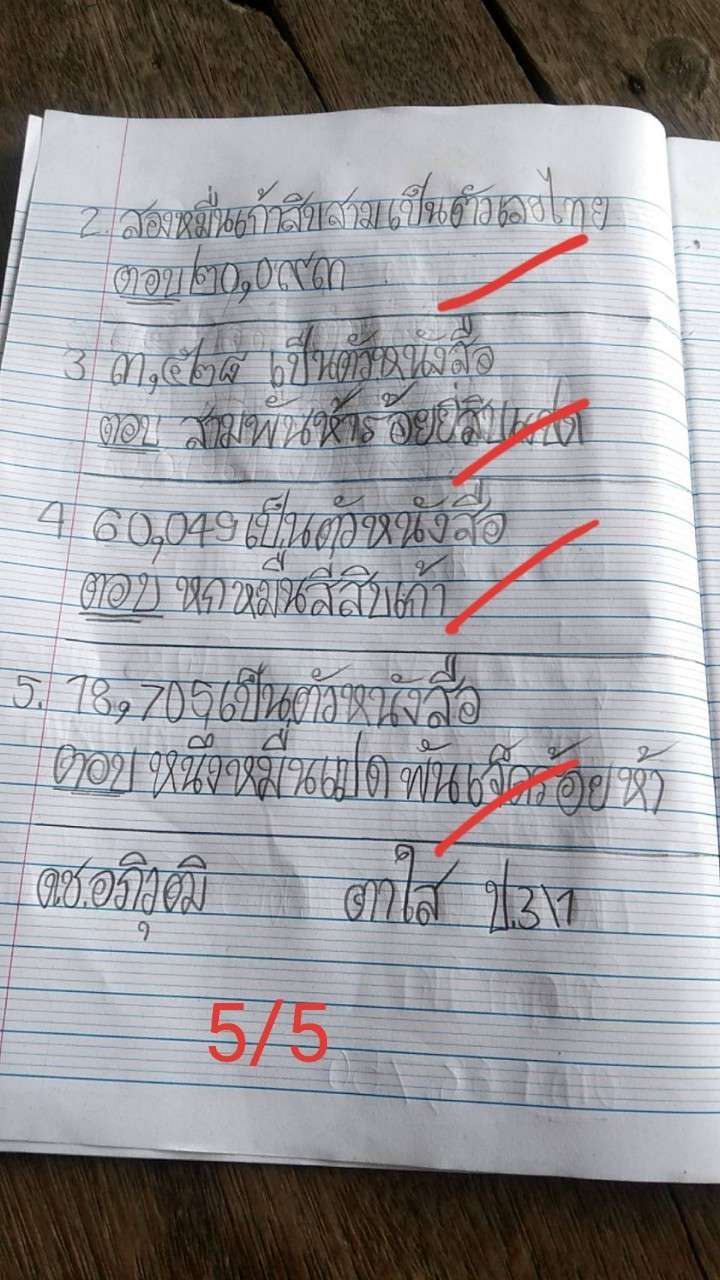 2. สองหมื่นเก้าสิบสามเป็นตัวเลขไทย
ตอบ ๒๐,๐๙๓
3 ๓,๕๒๘ เป็นตัวหนังสือ
ตอบ สามพันห้าร้อยยี่สิบแปด
4 60,049 เป็นตัวหนังสือ
ตอบ หกหมื่นสี่สิบเก้า
5. 18,705 เป็นตัวหนังสือ
ตอบ หนึ่งหมื่นแปดพันเจ็ดร้อยห้า
ด.ช.อภิวุฒิ ตาใส ป.3\1
5/5